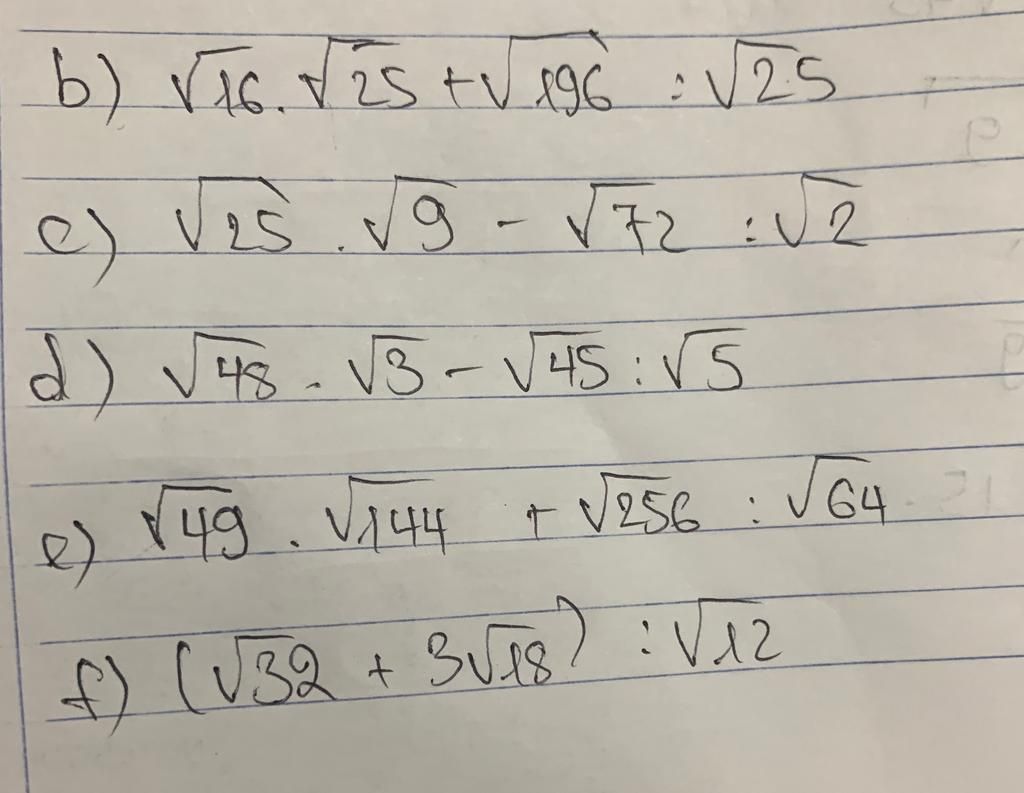 b) √16 . √25 + √196 : √25
c) √25 . √9 - √72 : √2
d) √48 . √3 - √45 : √5
e) √49 . √144 + √256 : √64
f) (√32 + 3√18) : √12